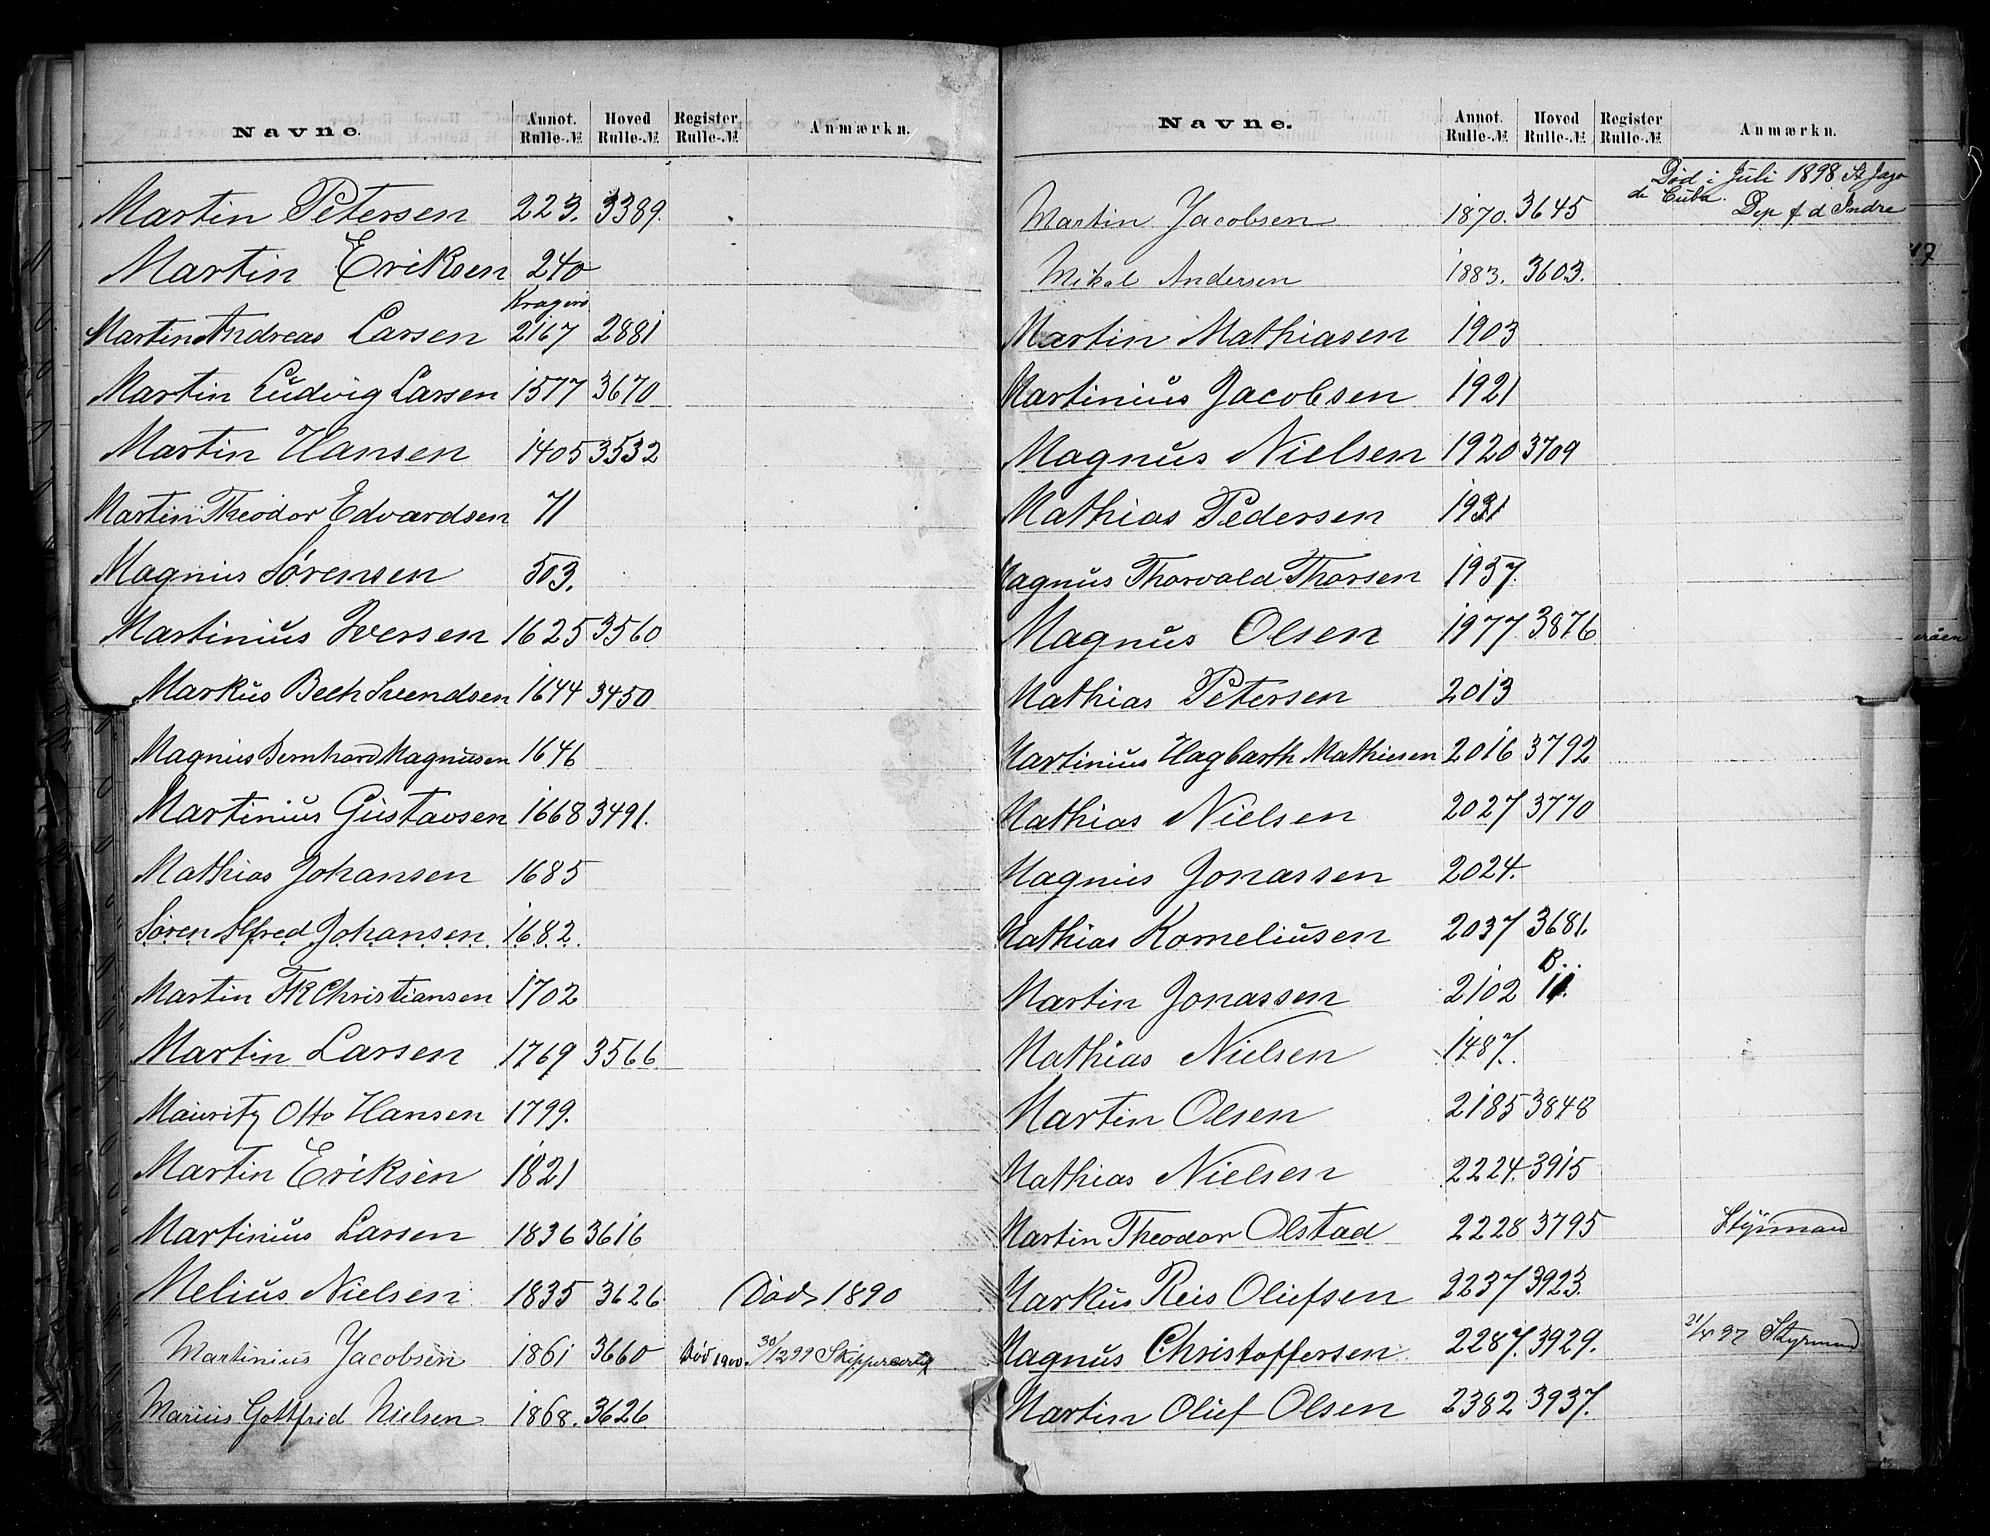 Navne. Annot. Rulle-№ Hoved Rulle-№ Register Rulle-№ Anmærkn.
Martin Petersen 223. 3389.
Martin Eriksen 240
Kragerö
Martin Andreas Larsen 2167 2881
Martin Ludvig Larsen 1577 3670
Martin Hansen 1405 3532
Martin Theodor Edvardsen 71
Magnus Sørensen 503.
Martinius Iversen 1625 3560
Markus Bech Svendsen 1644 3450
Magnus Bernhard Magnusen 1646
Martinius Gustavsen 1668 3491.
Mathias Johansen 1685
Søren Alfred Johansen 1682.
Martin FR Christiansen 1702
Martin Larsen 1769 3566
Mauritz Otto Hansen 1799.
Martin Eriksen 1821
Martinius Larsen 1836 3616
Melius Nielsen 1835 3626 Død 1890
Martinius Jacobsen 1861 3660 Død 1900. 30/12 99 Skippercertif
Marius Gottfrid Nielsen 1868. 3626
Navne. Annot. Rulle-№ Hoved Rulle-№ Register Rulle-№ Anmærkn.
Død i Juli 1898 St Jago
de Cuba.
Martin Jacobsen 1870. 3645 Dep f d Indre
Mikal Andersen 1883. 3603.
Martin Mathiasen 1903
Martinius Jacobsen 1921
Magnus Nielsen 1920 3709
Mathias Pedersen 1931
Magnus Thorvald Thorsen 1937.
Magnus Olsen 1977 3876
Mathias Petersen 2013
Martinius Hagbarth Mathiesen 2016 3792
Mathias Nielsen 2027 3770
Magnus Jonassen 2024.
Mathias Korneliusen 2037 3681.
B..
Martin Jonassen 2102 11.
Mathias Nielsen 1487.
Martin Olsen 2185 3848
Mathias Nielsen 2224. 3915
Martin Theodor Olstad 2228 3795 Styrmand
Markus Reis Olufsen 2237 3923.
Magnus Christoffersen 2287. 3929. 97 Styrmand
Martin Oluf Olsen 2382 3937.